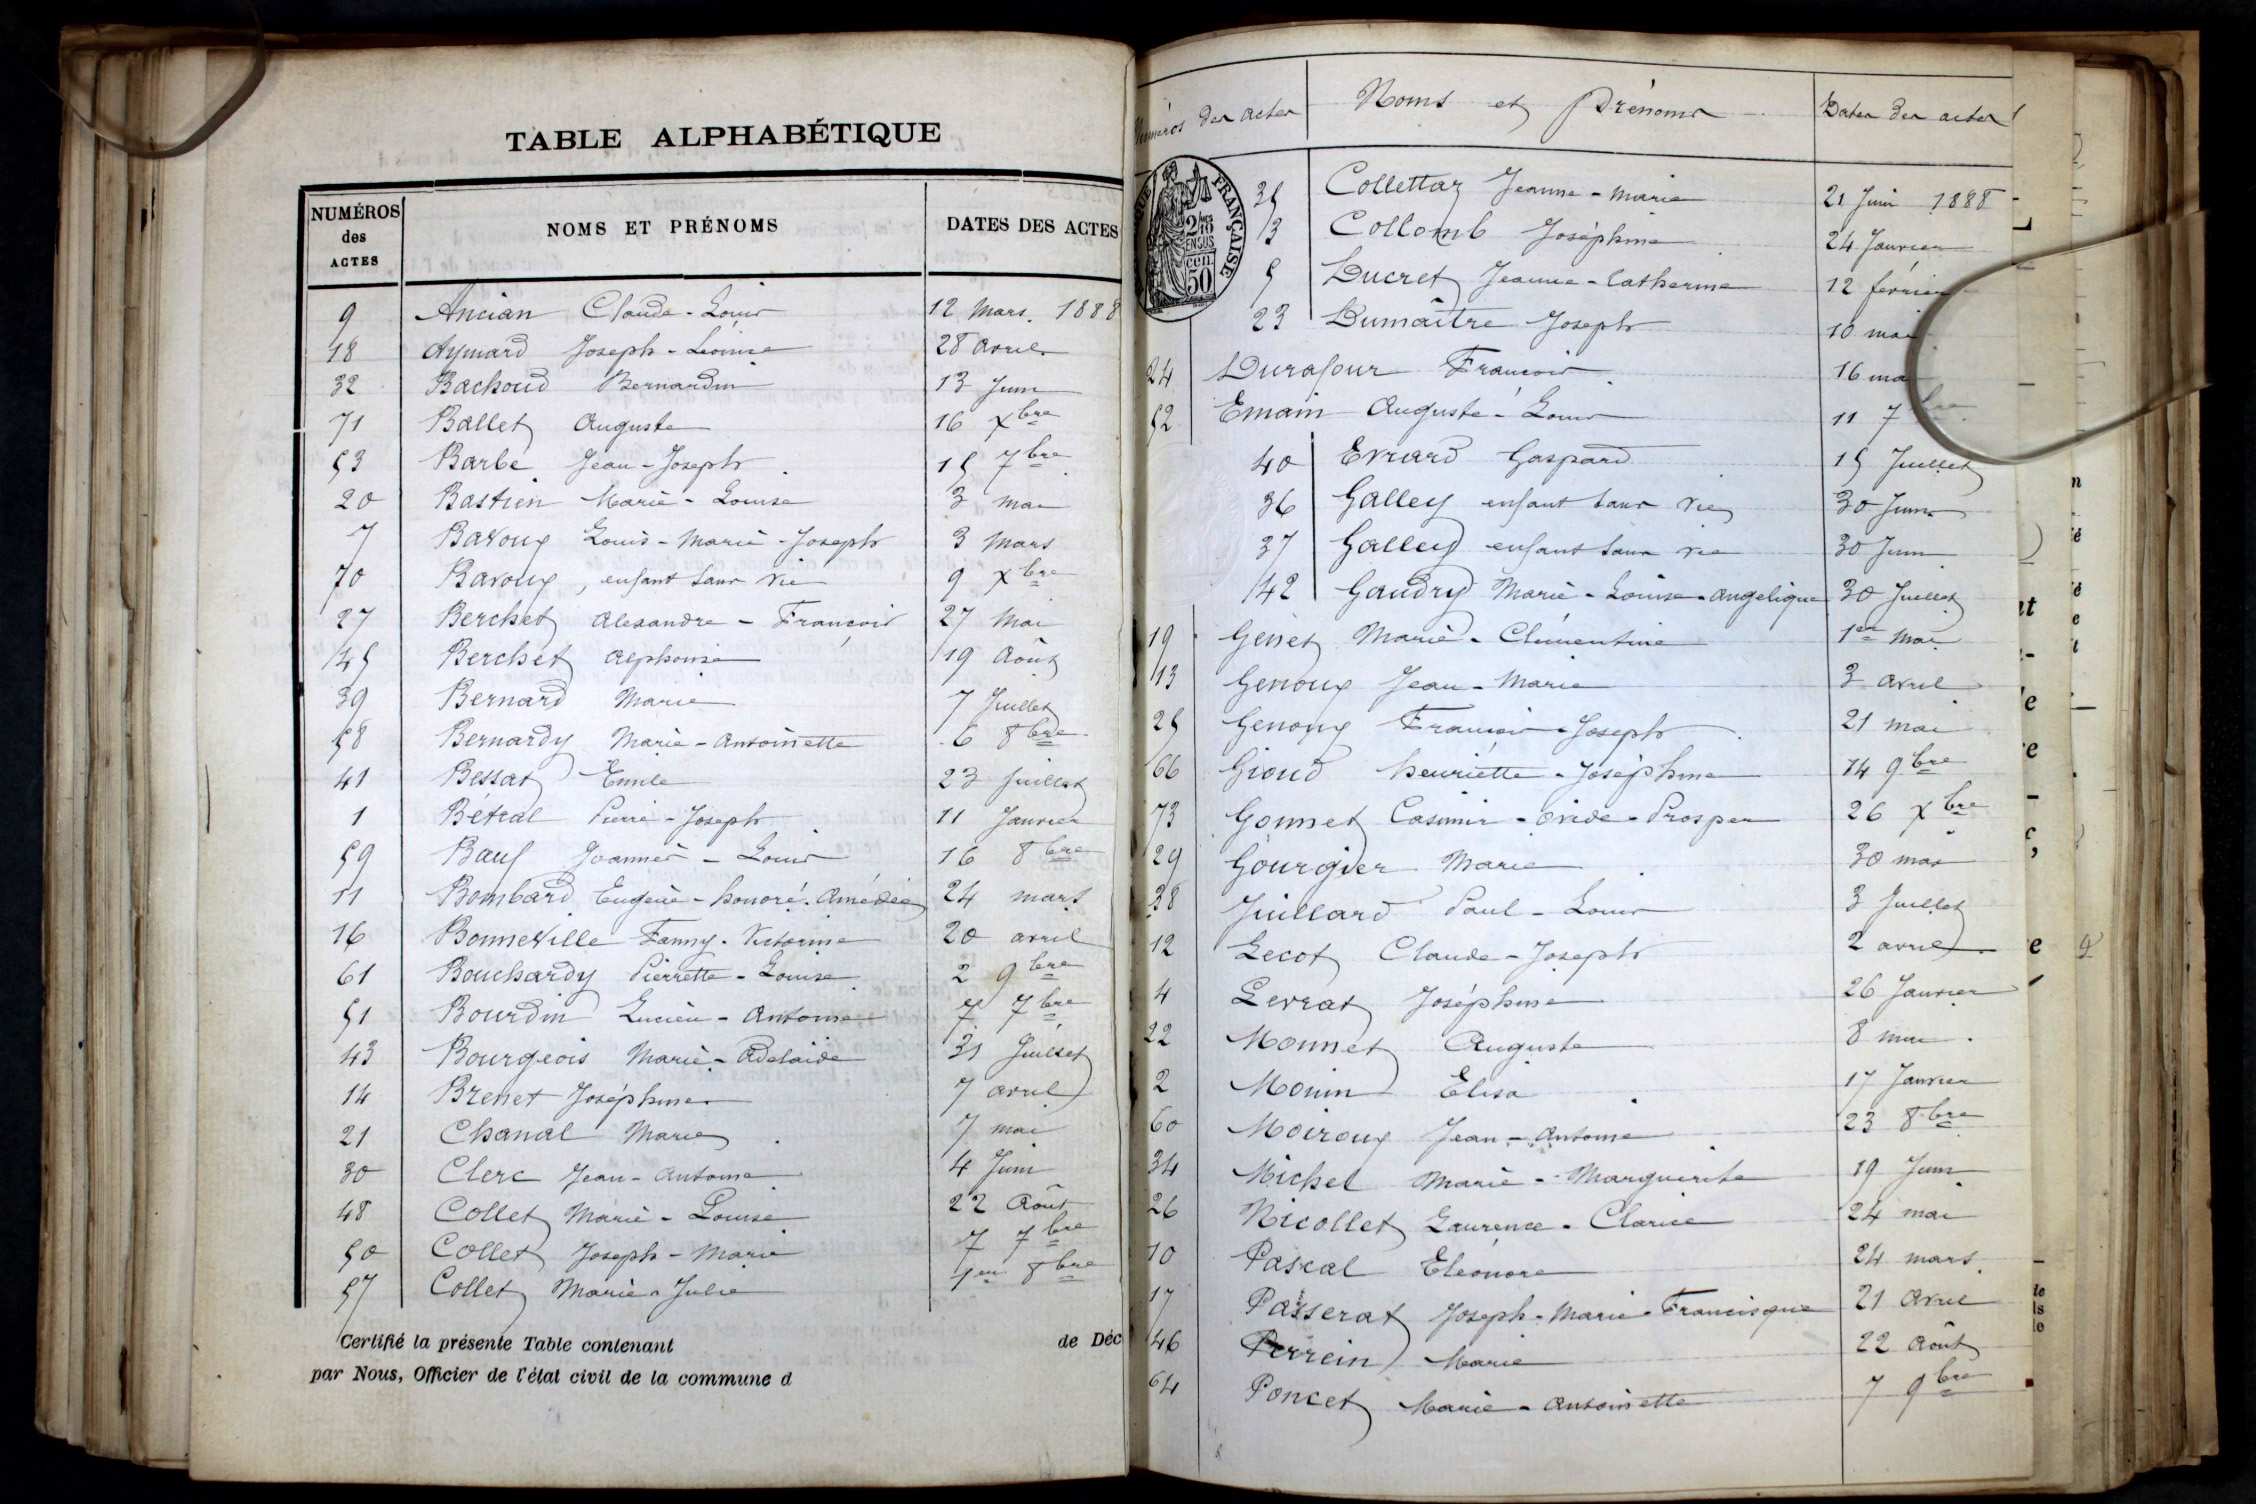 TABLE ALPHABÉTIQUE
NUMÉROS des ACTES NOMS ET PRÉNOMS DATES DES ACTES
9 Ancian Claude-Louis 12 Mars. 1888
18 Aymard Joseph-Léonise 28 avril
32 Bachoud Bernardin 13 Juin
71 Ballet Auguste 16 Xbre
53 Barbe Jean-Joseph 15 7bre
20 Bastien Marie-Louise 3 mai
7 Bavoux Louis-Marie-Joseph 3 Mars
70 Bavoux, enfant sans vie 9 Xbre
27 Berchet Alexandre-François 27 Mai
45 Berchet Alphonse 19 Août
39 Bernard Marie 7 Juillet
58 Bernardy Marie-Antoinette 6 8bre
41 Bessat Emile 23 Juillet
1 Bétral Pierre-Joseph 11 Janvier
59 Bauf Joannès-Louis 16 8bre
11 Bombard Eugène-honoré-Amédée 24 mars
16 Bonneville Fanny-Victorine 20 avril
61 Bouchardy Pierrette-Louise 2 9bre
51 Bourdin Lucien-Antoine 7 7bre
43 Bourgeois Marie-Adelaide 31 Juillet
14 Brenet Joséphine 7 avril
21 Chanal Marie 7 mai
30 Clerc Jean-Antoine 4 Juin
48 Collet Marie-Louise 22 Août
50 Collet Joseph-Marie 7 7bre
57 Collet Marie-Julie 1er 8bre
Certifié la présente Table contenant de Déc
par Nous, Officier de l'état civil de la commune d
Numéros des actes Noms et Prénoms Dates des actes
QUE FRANÇAISE
2/10 EN SUS
50 cen
35 Collettaz Jeanne-Marie 21 Juin 1888
3 Collomb Joséphine 24 Janvier
5 Ducret Jeanne-Catherine 12 février
23 Dumaître Joseph 10 mai
24 Durafour François 16 ma
52 Emain Auguste-Louis 11 7bre
40 Evrard Gaspard 15 Juillet
36 Galley enfant sans vie 30 Juin
37 Galley enfant sans vie 30 Juin
42 Gaudry Marie-Louise-Angelique 30 Juillet
19 Genet Marie-Clémentine 1er Mai
13 Genoux Jean-Marie 3 avril
25 Genoux François-Joseph 21 mai
66 Gioud henriette-Joséphine 14 9bre
73 Gonnet Casimir-Ovide-Prosper 26 Xbre
29 Gourgier Marie 30 mai
38 Juillard Paul-Louis 3 Juillet
12 Lecot Claude-Joseph 2 avril
4 Levrat Joséphine 26 Janvier
22 Monnet Auguste 8 mai
2 Monin Elisa 17 Janvier
60 Moiroux Jean-Antoine 23 8bre
34 Michel Marie-Marguerite 19 Juin
26 Nicollet Laurence-Clarice 24 mai
10 Pascal Eléonore 24 mars
17 Passerat Joseph-Marie-Francisque 21 Avril
46 Perrein Marie 22 Août
64 Poncet Marie-Antoinette 7 9bre